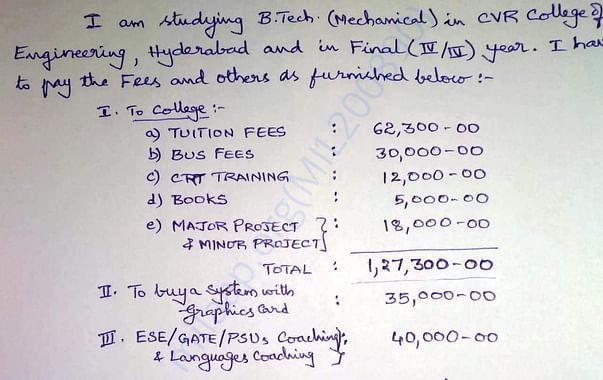 I am studying B.Tech. (Mechanical) in CVR College of
Engineering, Hyderabad and in Final (IV/IV) year. I hav
to pay the Fees and others as furnished below :-
I. To College :-
a) TUITION FEES : 62,300-00
b) BUS FEES : 30,000-00
c) CRT TRAINING : 12,000-00
d) BOOKS : 5,000-00
e) MAJOR PROJECT : 18,000-00
& MINOR PROJECT
TOTAL : 1,27,300-00
II. To buy a System with
Graphics Card : 35,000-00
III. ESE/GATE/PSUs Coaching : 40,000-00
& Languages Coaching